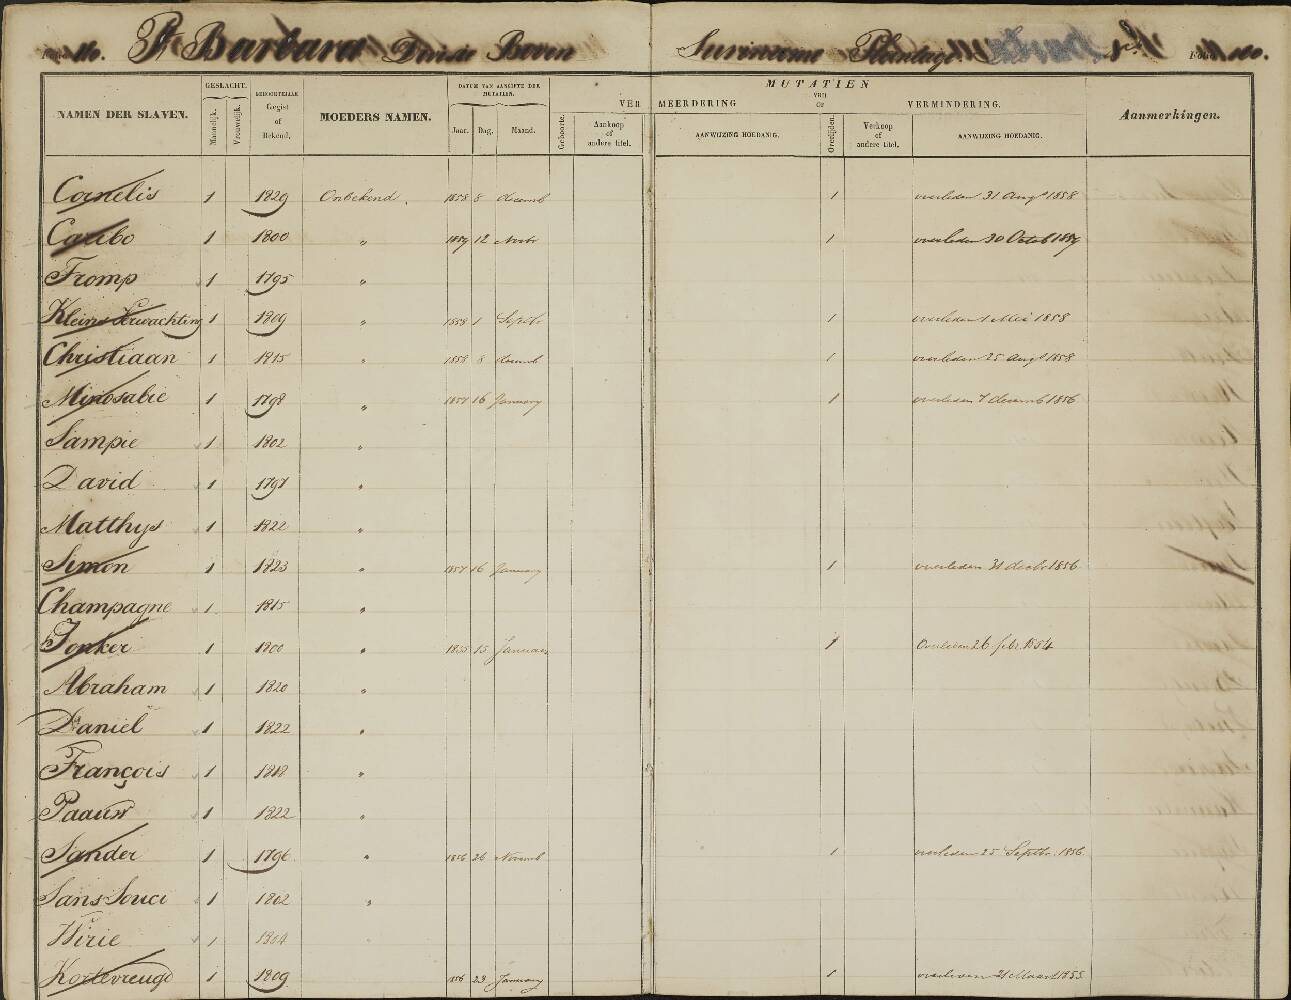 St Barbara Divisie Boven Surinaame Plantage
NAMEN DER SLAVEN. GESLACHT. Mannelijk. Vrouwelijk. GEBOORTEJAAR Gegist of Bekend. MOEDERS NAMEN. DATUM VAN AANGIFTE DER MUTATIEN. Jaar. Dag. Maand. MUTATIEN VERMEERDERING Geboorte. Aankoop of andere titel. AANWIJZING HOEDANIG. VERMINDERING. Overlijden. Verkoop of andere titel. AANWIJZING HOEDANIG. Aanmerkingen.
Cornelis 1 1829 Onbekend. 1858 8 decemb 1 overleden 31 Augt 1858
Caribo 1 1800 " 1857 12 Novbr 1 overleden 30 Octob 1857
Fromp 1 1795 "
Kleine Verwachting 1 1809 " 1858 1 Septbr 1 overleden 1 Mei 1858
Christiaan 1 1815 " 1858 8 decemb 1 overleden 25 Augt 1858
Minosabie 1 1798 " 1857 16 January 1 overleden 7 decemb 1856
Sampie 1 1802 "
David 1 1797 "
Matthys 1 1822 "
Simon 1 1823 " 1857 16 January 1 overleden 31 decbr 1856
Champagne 1 1815 "
Jonker 1 1800 " 1855 15 Januarij 1 Overleden 26 febr. 1854
Abraham 1 1820 "
Daniel 1 1822 "
François 1 1818 "
Paauw 1 1822 "
Sander 1 1796 " 1856 26 Novemb 1 overleden 25 Septbr. 1856
Sans Souci 1 1802 "
Wirie 1 1804 "
Kortevreugd 1 1809 1856 23 January 1 overleden 21 Maart 1855